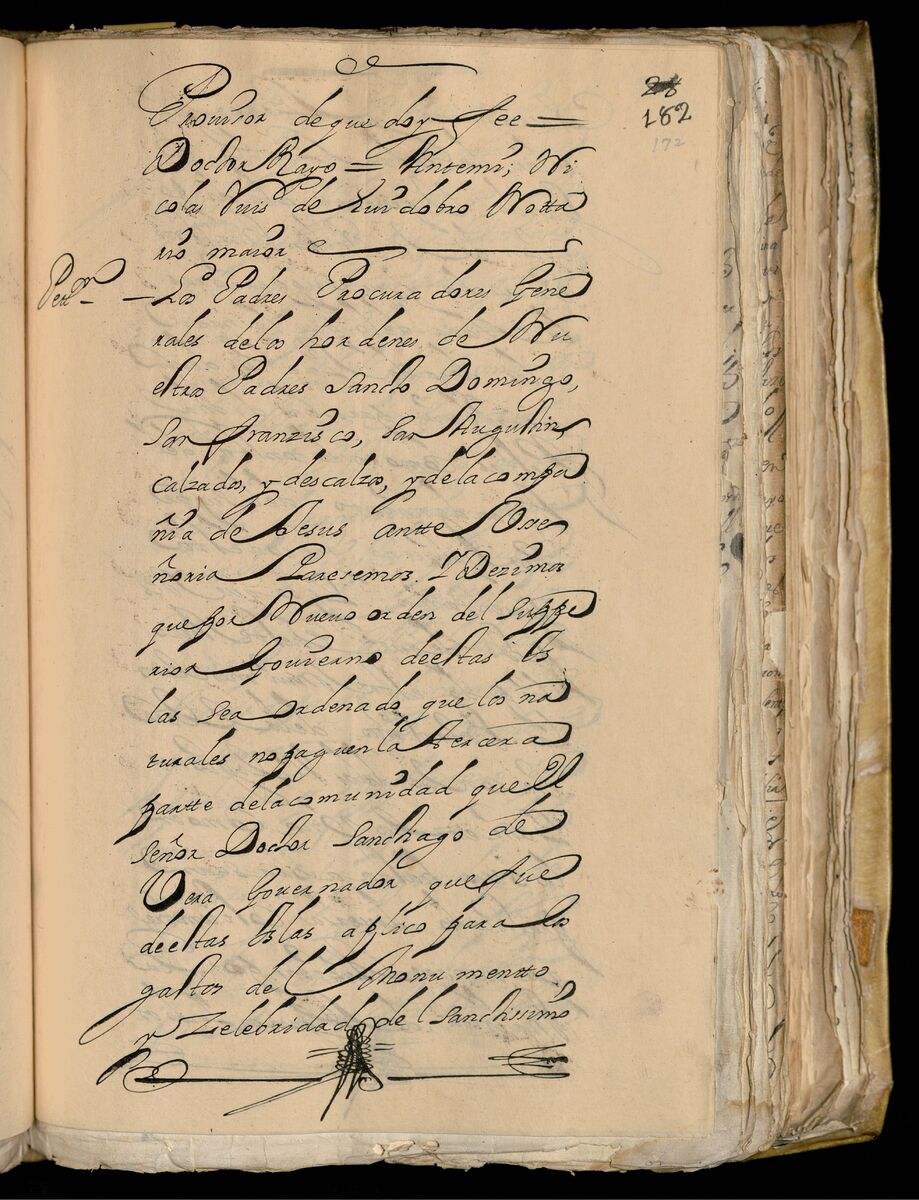 28
182
172
Provisor de que doy fee =
Doctor Rayo = Antemi, Ni
colas Ruis de Ruidobro Notta
rio maior
Petn. — Los Padres Procuradores Gene
rales de los hordenes de Nu
estros Padres Sancto Domingo,
san franzisco, san Augustin
calzados, y descalzos, y de la compa
ñia de Jesus antte V. Se
ñoria Paresemos. Y Dezimos
que por Nuevo orden del suppe
rior Govierno de estas Is
las sea ordenado que los na
turales no paguen la tercera
partte de la comunidad que el
señor Doctor Sanctiago de
Vera Governador que fue
de estas Islas aplico para los
gastos del Monumentto
y Zelebridad del Sanctissimo